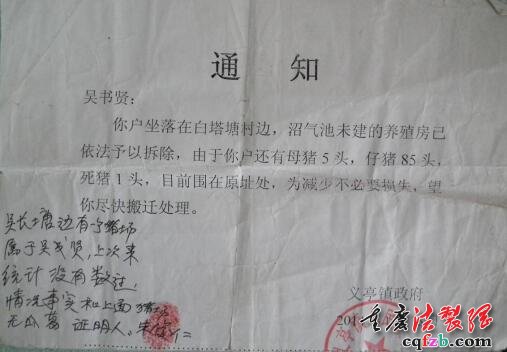 通 知
吴书贤:
你户坐落在白塔塘村边,沼气池未建的养殖房已
依法予以拆除,由于你户还有母猪5头,仔猪85头,
死猪1头,目前围在原址处,为减少不必要损失,望
你尽快搬迁处理。
吴长塘边有 猪场
属于吴 贤,上次来
统计没有数过,
情况事实和上面
无瓜葛 证明人:朱
义亭镇政府
201
重庆法制网
cqfzb.com